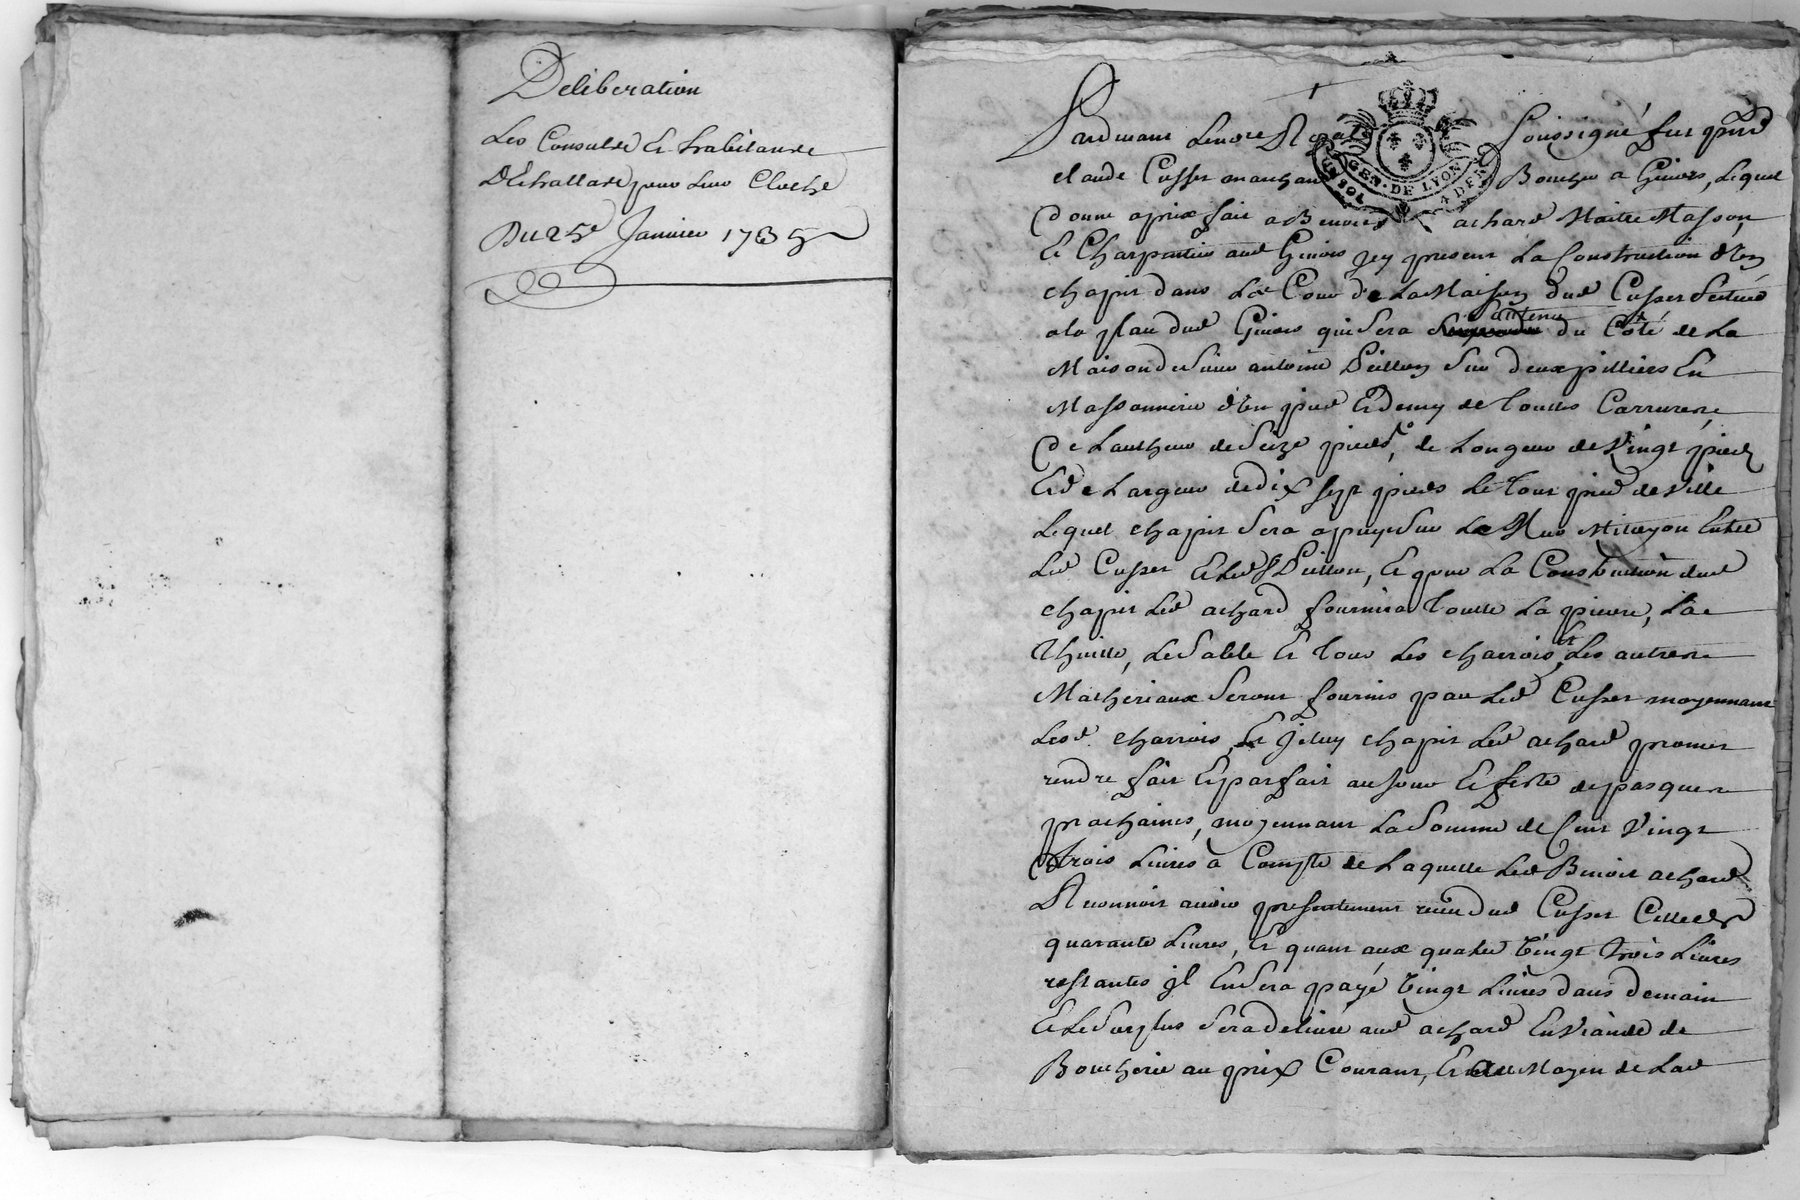 Deliberation
Les Consuls Et habitants
D'Echallas pour leur Cloche
Du 25e Janvier 1735
Pardevant le no.re Royal Soussigné fut pnt
GEN. DE LYON
claude Cusset marchand Boucher a Givors, lequel
donne a prix fait a Benoist achard Maitre Masson,
Et Charpentier aud Givors jcy present La Construction d'un
chapit dans La Cour de La Maison dud Cusset Scituée
a la plau dud Givors qui sera attenu du Coté de La
Maison de Sieur antoine Peillon Sur deux pilliers En
Massonnerie d'un pied Et Demy de Touttes Carrures,
De hautheur de Seize pieds, de Longeur de Vingt pieds
Et de Largeur de dix sept pieds Le Tout pied de Ville
Lequel chapit Sera apuye Sur Le Mur Mitoyen Entre
Led Cusset Et led Sr Peillon, Et pour La Construction dud
chapit Led achard fournira Toutte La pierre, La
Thuille, Le Sable Et Tous Les charrois, Et Les autres
Matheriaux Seront fournis par Led Cusset moyennant
Lesd. charrois, Et Jceluy chapit Led achard promet
rendre fait Et parfait au jour Et feste de pasques
prochaines, moyennant La Somme de Cent Vingt
Trois Livres a Compte de Laquelle Led Benoit achard
Reconnoit avoir presentement reçu dud Cusset Celle de
quarante Livres, Et quant aux quatre Vingt Trois Livres
restantes jl En Sera payé Vingt Livres dans demain
Et Le Surplus Sera delivré aud achard En Viande de
Boucherie au prix Courant, Et au Moyen de Lad